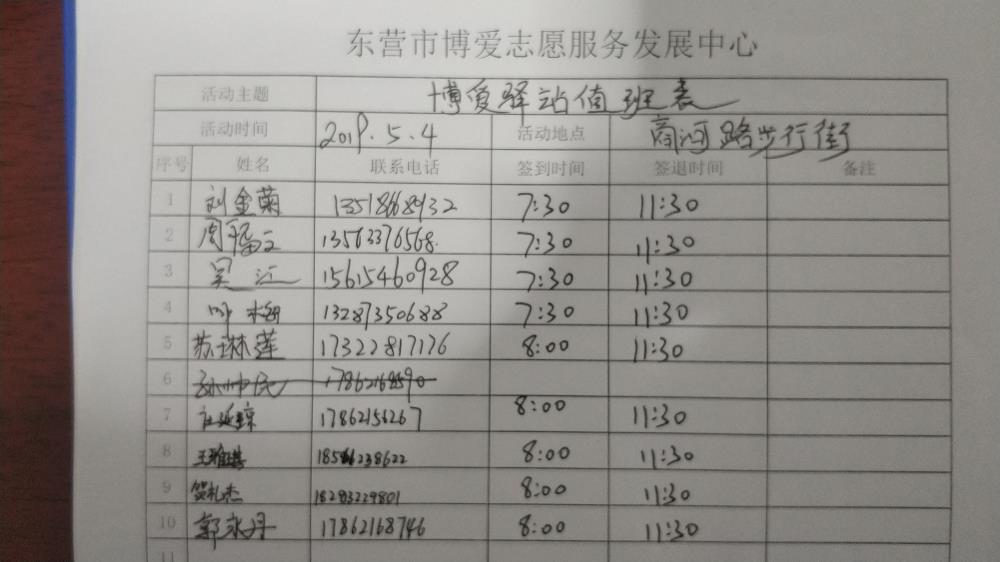 东营市博爱志愿服务发展中心
活动主题 博爱驿站值班表
活动时间 2019.5.4 活动地点 商河路步行街
序号 姓名 联系电话 签到时间 签退时间 备注
1 刘金菊 13518668932 7:30 11:30
2 周福云 13563376568 7:30 11:30
3 吴江 15615460928 7:30 11:30
4 咏梅 13287350688 7:30 11:30
5 苏琳莲 17322817176 8:00 11:30
6
7 17862156267 8:00 11:30
8 8:00 11:30
9 贺礼杰 18283229801 8:00 11:30
10 郭永丹 17862168746 8:00 11:30
11